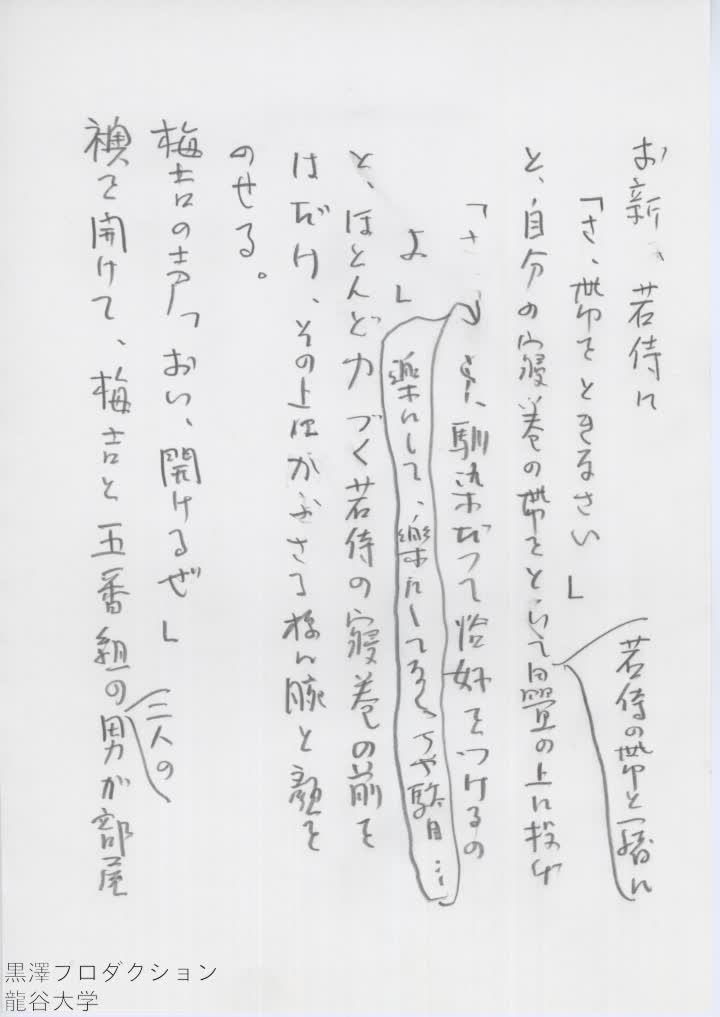 お新、若侍に
「さ、帯をときなさい」
と、自分の寝巻の帯をといて畳の上に投げ
若侍の帯と一緒に
「さ
よ、馴染だって恰好をつけるの
よ」
楽にして、楽にしてなくちや駄目…
と、ほとんど力づく若侍の寝巻の前を
はだけ、その上にかぶさる様に腕と顔を
のせる。
梅吉の声「おい、開けるぜ」
襖を開けて、梅吉と五番組の男が部屋
三人の
黒澤プロダクション
龍谷大学